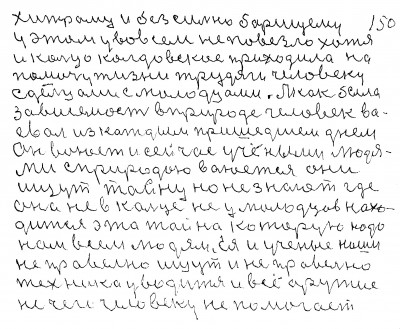 хитрому и безсилно барищему 150
у этом у вовсем неповезло хотя
и колцо колдовское приходила на
помочу тизни трудяги человеку
с дтуцами с молодцами. Як как была
зависемост в природе человек ва-
евал из каждим пришедшем днем
Он воюет и сейчас учёными людя-
ми с природою ваюется они
ищут тайну но незнают где
она не в колце не у молодцов нахо-
дится эта тайна которую надо
нам всем людям. Ея и ученые наши
не правелно ищут и не правелно
техника уводится и всё оружие
не чего человеку не помогает